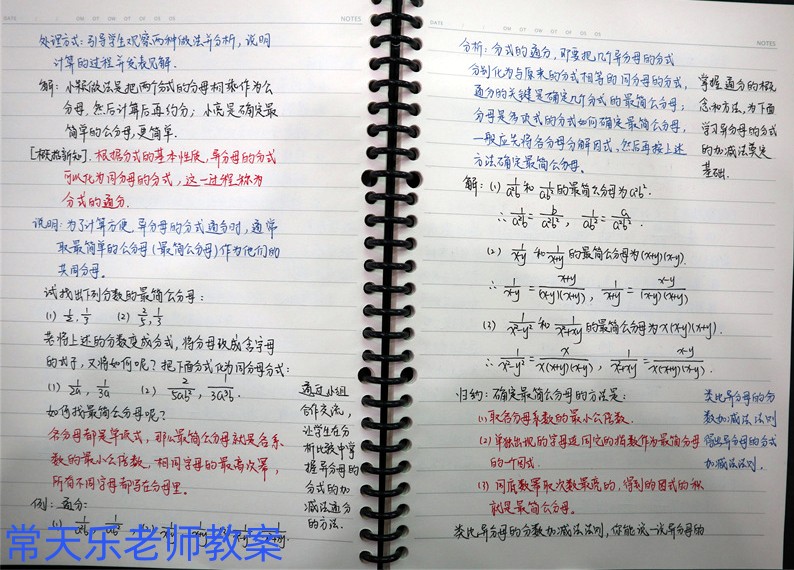 DATE
NOTES
处理方式:引导学生观察两种做法并分析,说明
计算的过程并发表见解.
解:小颖做法是把两个分式的分母相乘作为公
分母,然后计算后再约分;小亮是确定最
简单的公分母,更简单.
[概括新知].根据分式的基本性质,异分母的分式
可以化为同分母的分式,这一过程称为
分式的通分.
说明:为了计算方便,异分母的分式通分时,通常
取最简单的公分母(最简公分母)作为他们的
共同分母.
试找出下列分数的最简公分母:
(1) 1/2, 1/3 (2) 2/5, 1/3
若将上述的分数变成分式,将分母改成含字母
的式子,又将如何呢?把下面分式化为同分母分式:
(1) 1/2a, 1/3a (2) 2/5ab², 1/3a²b.
如何找最简公分母呢?
各分母都是单项式,那么最简公分母就是各系
数的最小公倍数,相同字母的最高次幂,
所有不同字母都写在分母里.
例:通分:
(1) 1/a²b, 1/ab²
通过小组
合作交流,
让学生在分
析比较中掌
握异分母的
分式的加
减法通分
的方法.
常天乐老师教案
DATE
NOTES
分析:分式的通分,即要把几个异分母的分式
分别化为与原来的分式相等的同分母的分式,
通分的关键是确定几个分式的最简公分母;
分母是多项式的分式如何确定最简公分母,
一般应先将各分母分解因式,然后再按上述
方法确定最简公分母.
掌握通分的概
念和方法,为下面
学习异分母的分式
的加减法奠定
基础.
解:(1) 1/a²b 和 1/ab² 的最简公分母为a²b².
∴ 1/a²b = b/a²b², 1/ab² = a/a²b².
(2) 1/x-y 和 1/x+y 的最简公分母为(x+y)(x-y).
∴ 1/x-y = x+y/(x-y)(x+y), 1/x+y = x-y/(x-y)(x+y)
(3) 1/x²-y² 和 1/x²+xy 的最简公分母为x(x+y)(x-y).
∴ 1/x²-y² = x/x(x+y)(x-y), 1/x²+xy = x-y/x(x+y)(x-y).
归纳:确定最简公分母的方法是:
(1)取各分母系数的最小公倍数.
(2)单独出现的字母连同它的指数作为最简公分母
的一个因式.
(3)同底数幂取次数最高的,得到的因式的积
就是最简公分母.
类比异分母的分
数加减法法则
得出异分母的分式
加减法法则.
类比异分母的分数加减法法则,你能说一说异分母的